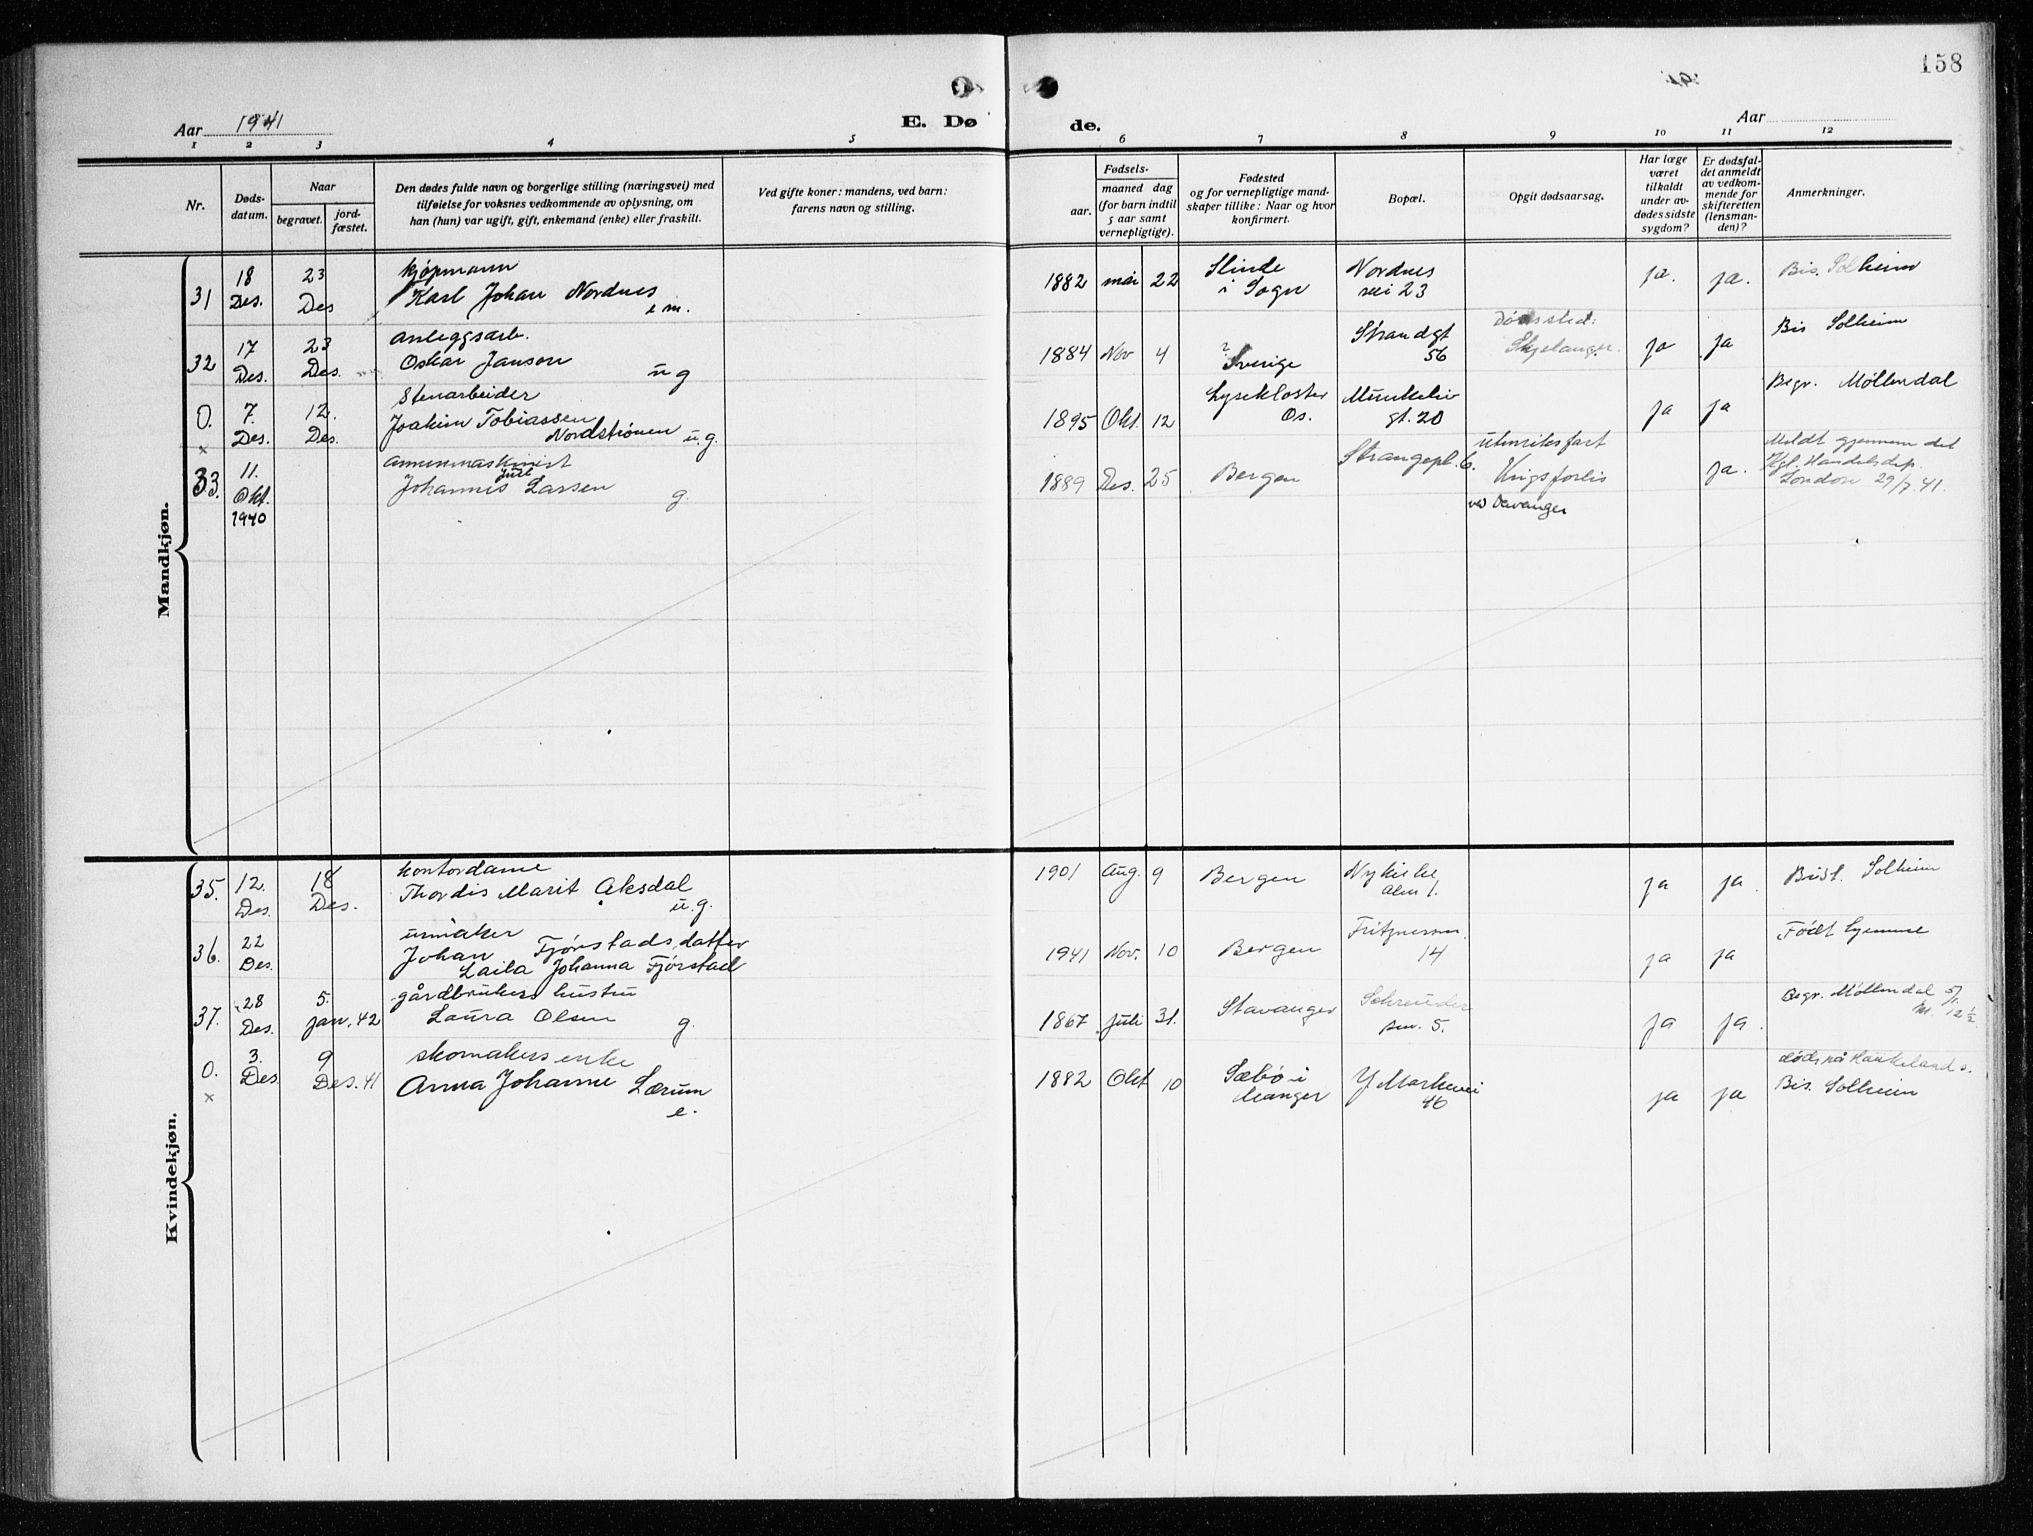 158
Aar 1941
E. Dø
de.
Aar
1 2 3 4 5 6 7 8 9 10 11 12
Nr.
Døds-
datum.
Naar
begravet.
jord-
fæstet.
Den dødes fulde navn og borgerlige stilling (næringsvei) med
tilføielse for voksnes vedkommende av oplysning, om
han (hun) var ugift, gift, enkemand (enke) eller fraskilt.
Ved gifte koner: mandens, ved barn:
farens navn og stilling.
Fødsels-
aar.
maaned dag
(for barn indtil
5 aar samt
vernepligtige).
Fødested
og for vernepligtige mand-
skaper tillike: Naar og hvor
konfirmert.
Bopæl.
Opgit dødsaarsag.
Har læge
været
tilkaldt
under av-
dødes sidste
sygdom?
Er dødsfal-
det anmeldt
av vedkom-
mende for
skifteretten
(lensman-
den)?
Anmerkninger.
Mandkjøn.
31 18 Des. 23 Des
kjøpmann
Karl Johan Nordnes
e.m.
1882 mai 22
Slinde
i Sogn
Nordnes
vei 23
ja. ja.
Bis. Solheim
32 17 Des. 23 Des.
anleggsarb.
Oskar Janson
ug
1884 Nov 4
?
Sverige
Strandgt
56
Dødssted:
Skjelanger.
ja ja
Bis Solheim
0. x 7. Des. 12. Des.
Stenarbeider
Joakim Tobiassen
Nordstrønen u.g.
1895 Okt. 12
Lysekloster
Os.
Munkeliv
gt. 20
ja ja
Begr. Møllendal
33. 11. Okt. 1940
Juul
Johannes Larsen
g.
1889 Des. 25
Bergen
Strangepl. 6.
utenriksfart
Krigsforlis
ved
ja.
Meldt gjennem det
Kgl. Handelsdep.
London 29/7.41.
Kvindekjøn.
35. 12. Des. 18 Des.
kontordame
Thordis Marit Aksdal
u.g.
1901 Aug. 9
Bergen
Nykirke
alm 1.
ja ja.
Bis. Solheim
36. 22 Des.
urmaker
Johan Fjørstads datter
Laila Johanna Fjørstad
1941 Nov. 10
Bergen
14
ja ja
Født hjemme
37. 28 Des. 5. jan. 42
gårdbrukers hustru
Laura Olsen
g.
1867 Juli 31.
Stavanger
5.
ja ja.
Begr. Møllendal 5/1.
kl. 12 ½
0. x 3. Des. 9 Des. 41
skomakers enke
Anna Johanne Lærum
e.
1882 Okt 10
Sæbø i
Manger
Y Markevei
46
ja ja
død på Haukeland s.
Bis. Solheim